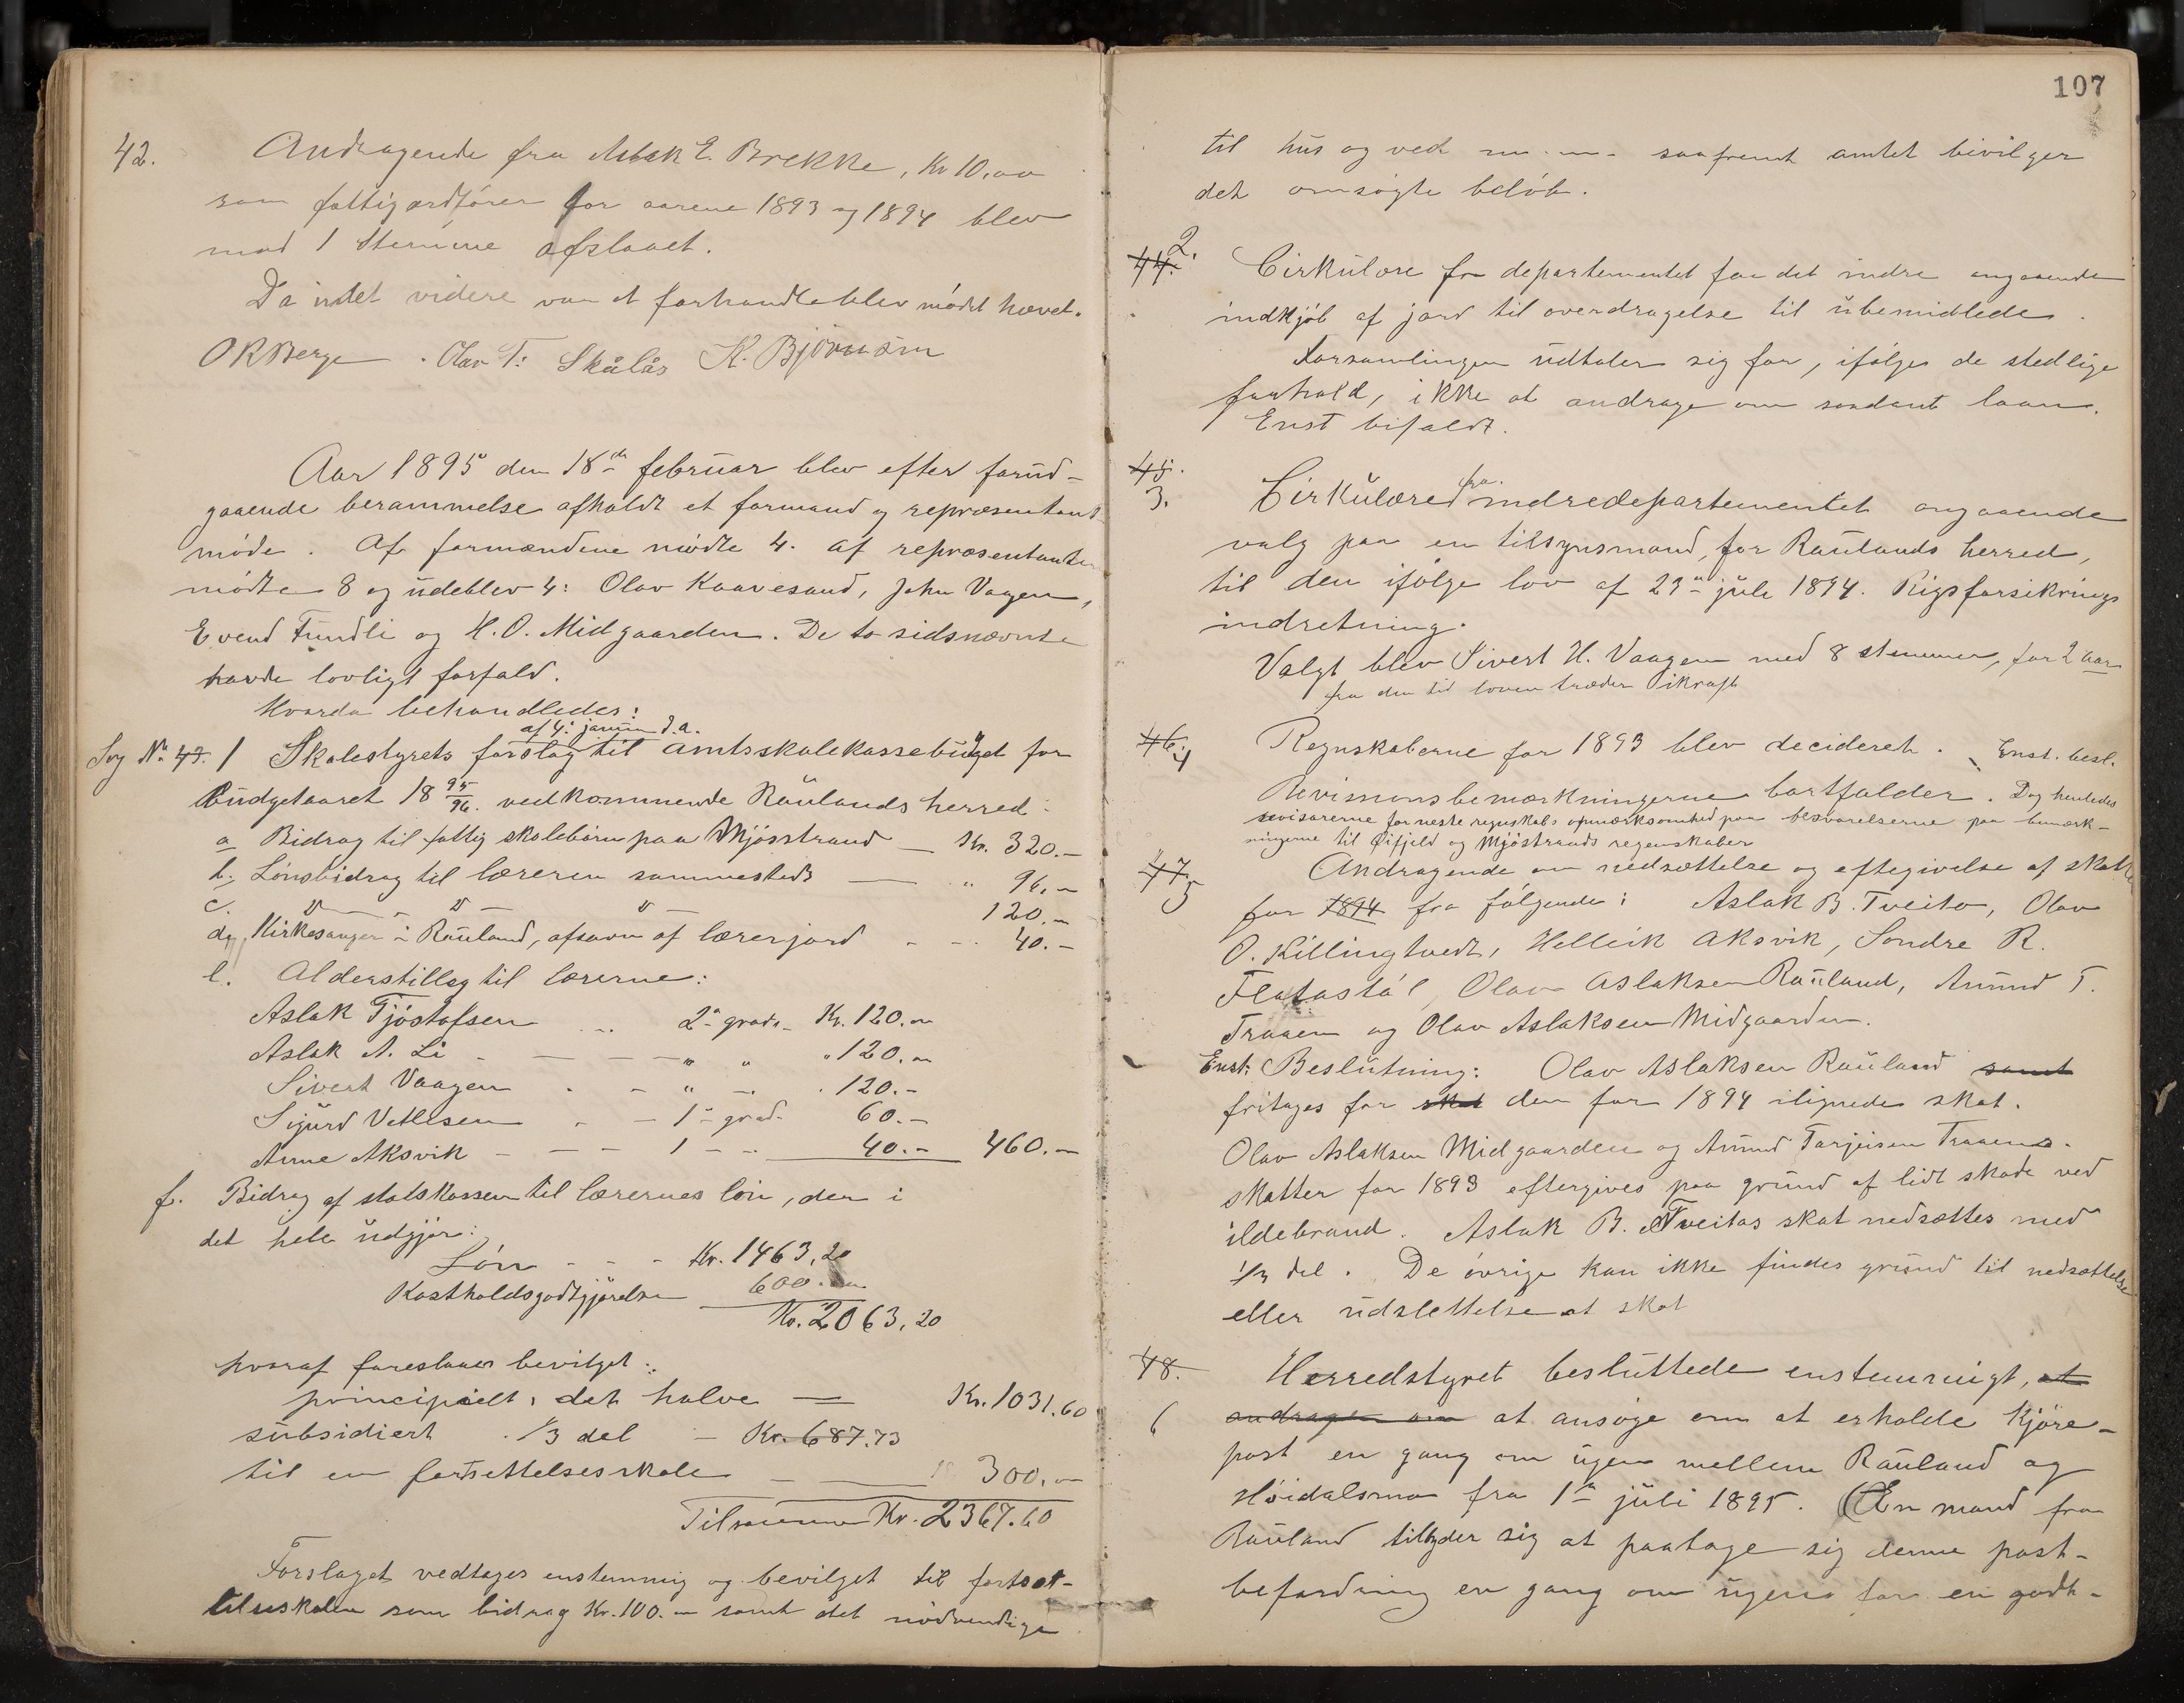 42. Andragende fra Aslak E. Brekke, Kr 10,00
som fattigordfører for aarene 1893 og 1894 blev
mod 1 stemme afslaaet.
Da intet videre var at forhandle blev mödet hævet.
O K Berge Olav T. Skålås K. Björnson
Aar 1895 den 18de februar blev efter forud-
gaaende berammelse afholdt et formand og repræsentant
möde. Af formændene mödte 4. af repræsentanter
mödte 8 og udeblev 4: Olav Kaavesand, John Vaagen,
Evend Fundli og H. O. Midgaarden. De to sidsnævnte
havde lovligt forfald.
Hvorda behandledes:
af 4: januar d.a.
Sag No 43. 1 Skolestyrets forslag til amtsskolekassebudget for
budgetaaret 18 95/96. vedkommende Raulands herred:
a Bidrag til fattig skolebörn paa Mjösstrand — Kr. 320.-
b. Lönsbidrag til læreren sammesteds — " 96.-
c. " " " 120.-
d. Kirkesanger i Rauland, afsavn af lærerjord - - - 40.-
e. Alderstillæg til lærerne:
Aslak Tjöstofsen - - 2n grads - Kr. 120.00
Aslak A. Li - - - " " " 120.00
Sivert Vaagen - - " - . 120.-
Sigurd Vetlesen - - 1n grad. 60.-
Anne Aksvik - - - 1 - - 40.- 460.-
f. Bidrag af statskassen til lærernes lön, der i
det hele udgjör:
Lön - - - Kr. 1463,20
Kostholdsgodtgjörelse 600.00
Kr. 2063,20
hvoraf foreslaaes bevilget:
principielt, det halve — Kr. 1031.60
subsidiert . 1/3 del - Kr. 687.73
til en fortsettelsesskole — 300.00
Tilsammen Kr. 2367.60
Forslaget vedtages enstemmig og bevilget til fortsæt-
telseskolen som bidrag Kr. 100.00 samt det nödvendige
107
til hus og ved m. m. saafremt amtet bevilger
det omsögte belöb.
44. 2. Cirkulære fra departementet for det indre angaaende
indkjöb af jord til overdragelse til ubemidlede.
Forsamlingen udtaler sig for, ifölge de stedlige
forhold, ikke at andrage om saadant laan.
Enst bifaldt.
45.
3. Cirkulære fra indredepartementet angaaende
valg paa en tilsynsmand, for Raulands herred,
til den ifölge lov af 23n juli 1894. Rigsforsikrings
indretning.
Valgt blev Sivert H. Vaagen med 8 stemmer, for 2 aar
fra den tid loven træder ikraft
46. 4 Regnskaberne for 1893 blev decideret. Enst. besl.
Revisionsbemærkningerne bortfalder. Dog henledes
revisorerne for neste regnskabs opmærksomhed paa besvarelserne paa bemærk-
ningerne til Öifjeld og Mjöstrands regnskaber
47. 5 Andragende om nedsættelse og eftegivelse af skatte
for 1894 fra fölgende: Aslak B. Tveito, Olav
O. Killingtvedt, Helleik Aksvik, Sondre R.
Flatastöl, Olav Aslaksen Rauland, Amund T.
Traaen og Olav Aslaksen Midgaarden.
Enst: Beslutning: Olav Aslaksen Rauland samt
fritages for skat den for 1894 ilignede skat.
Olav Aslaksen Midgaarden og Amund Tarjeisen Traaens
skatter for 1893 eftergives paa grund af lidt skade ved
ildebrand. Aslak B. Tveitos skat nedsættes med
1/3 del. De övrige kan ikke findes grund til nedsættelse
eller udslettelse at skat
48. Herredstyret besluttede enstemmigt, at
6 andragen om at ansöge om at erholde Kjöre-
post en gang om ugen mellem Rauland og
Höidalsmo fra 1ste juli 1895. (En mand fra
Rauland tilbyder sig at paatage sig denne post-
befordring en gang om ugen for en godt-